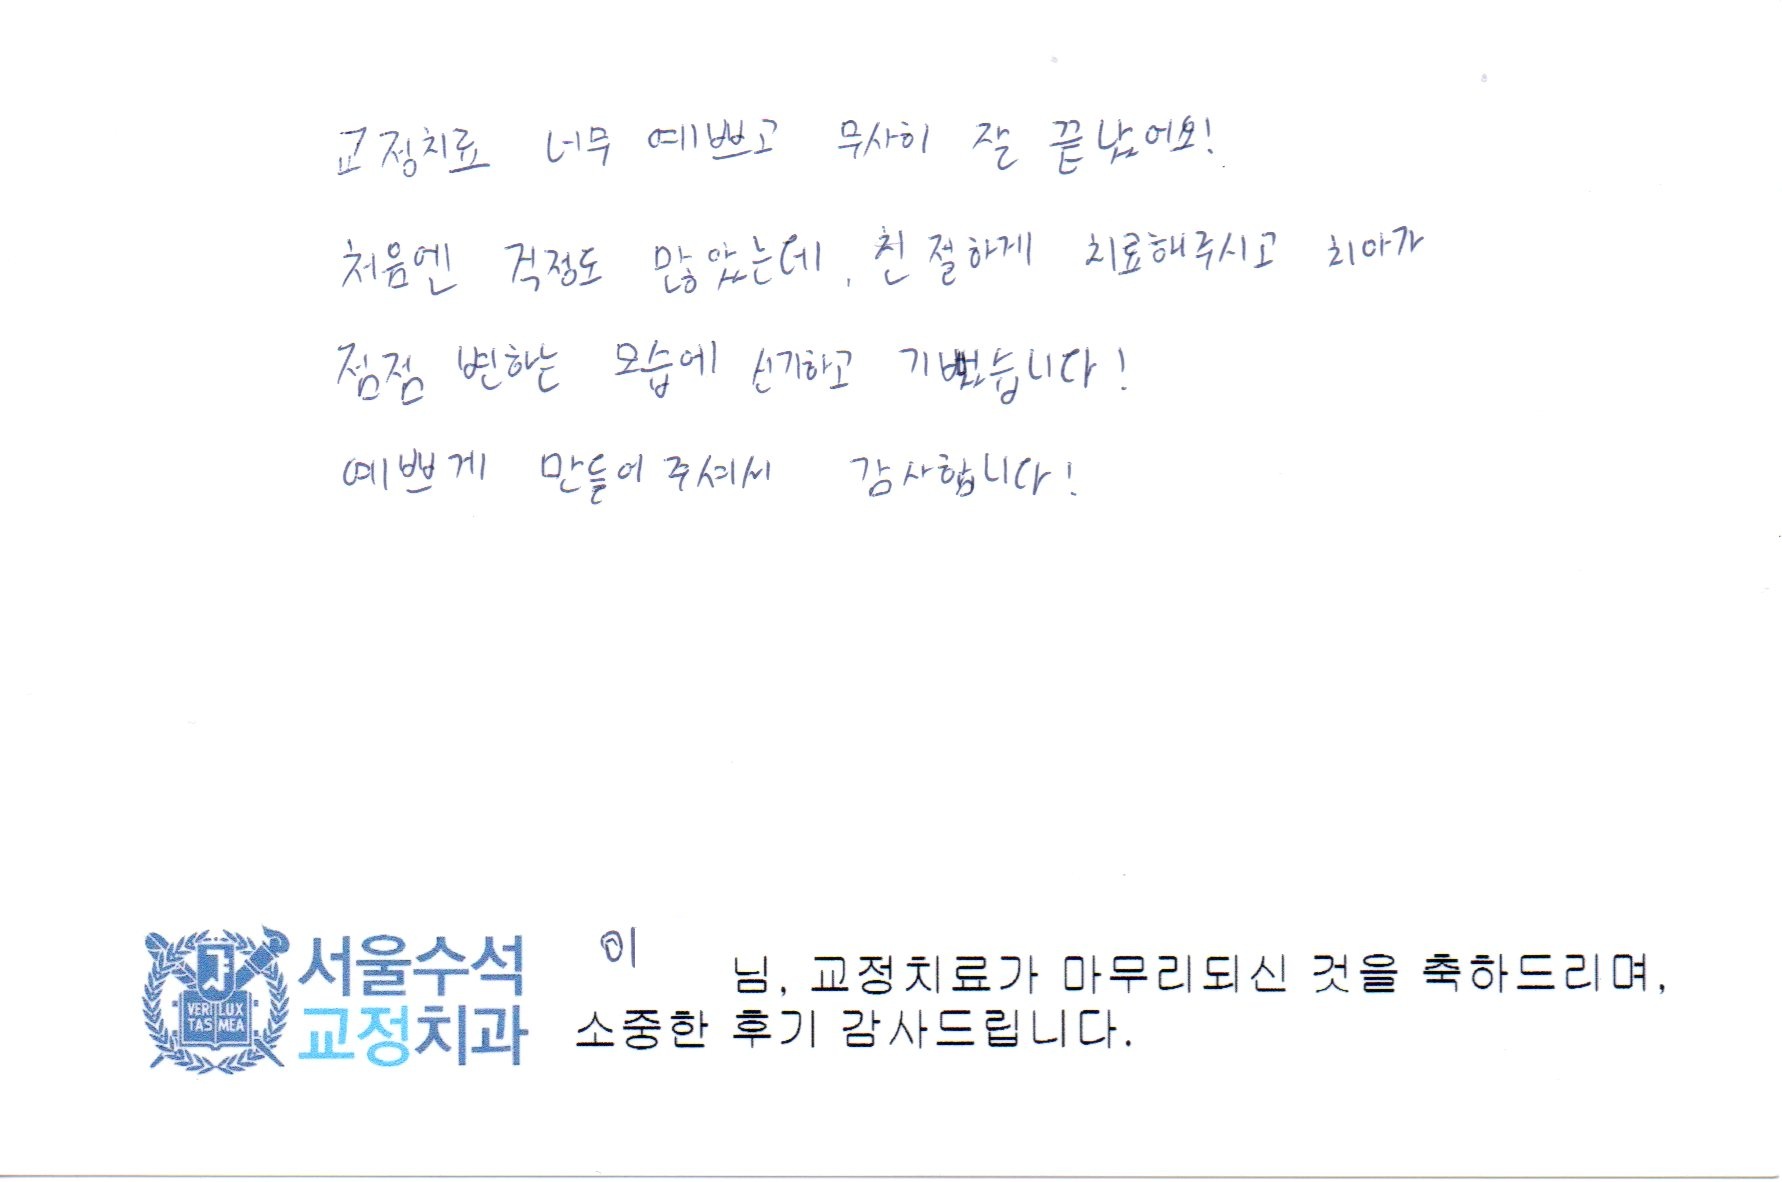 교정치료 너무 예쁘고 무사히 잘 끝났어요!
처음엔 걱정도 많았는데, 친절하게 치료해주시고 치아가
점점 변하는 모습에 신기하고 기뻤습니다!
예쁘게 만들어주셔서 감사합니다!
VERI LUX
TAS MEA
서울수석
교정치과
이 님, 교정치료가 마무리되신 것을 축하드리며,
소중한 후기 감사드립니다.